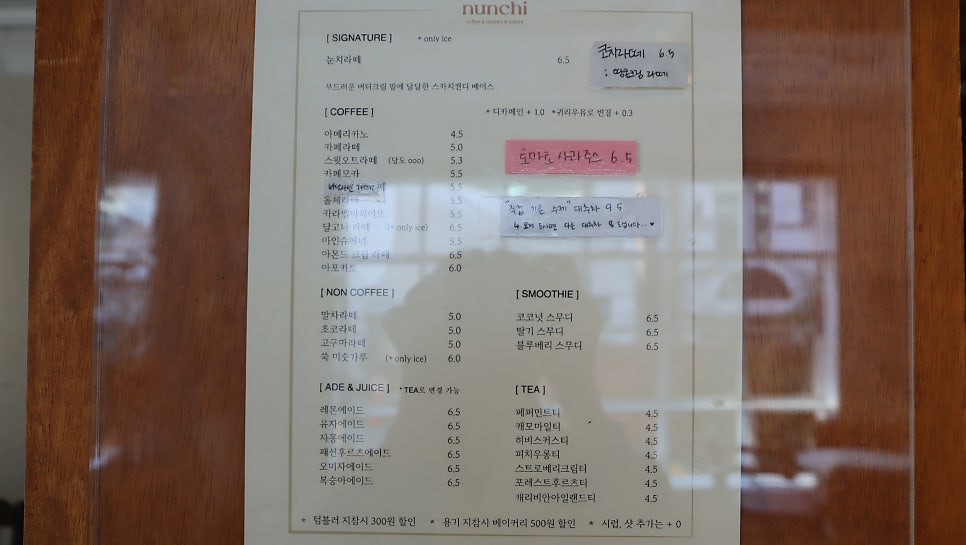 nunchi
coffee & dessert & bakery
[ SIGNATURE ] * only ice
눈치라떼 6.5
부드러운 버터크림 밑에 달달한 스카치캔디 베이스
6.5
[ COFFEE ] * 디카페인 + 1.0 *귀리우유로 변경 + 0.3
아메리카노 4.5
카페라떼 5.0
스윗오트라떼 (당도 ooo) 5.3
카페모카 5.5
5.5
돌체라떼 5.5
카라멜마끼아또 5.5
달고나 라떼 (* only ice) 6.5
아인슈페너 5.5
아몬드 크림 라떼 6.5
아포카토 6.0
토마토 사과주스 6.5
수제" 대추차 9.5
[ NON COFFEE ]
말차라떼 5.0
초코라떼 5.0
고구마라떼 5.0
쑥 미숫가루 (* only ice) 6.0
[ SMOOTHIE ]
코코넛 스무디 6.5
딸기 스무디 6.5
블루베리 스무디 6.5
[ ADE & JUICE ] * TEA로 변경 가능
레몬에이드 6.5
유자에이드 6.5
자몽에이드 6.5
패션후르츠에이드 6.5
오미자에이드 6.5
복숭아에이드 6.5
[ TEA ]
페퍼민트티 4.5
캐모마일티 4.5
히비스커스티 4.5
피치우롱티 4.5
스트로베리크림티 4.5
포레스트후르츠티 4.5
캐리비안아일랜드티 4.5
* 텀블러 지참시 300원 할인 * 용기 지참시 베이커리 500원 할인 * 시럽, 샷 추가는 + 0